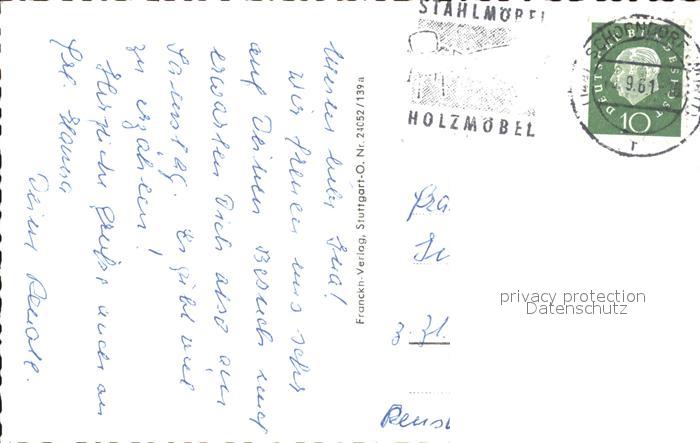 Meine liebe Ina!
wir freuen uns sehr
auf Deinen Besuch und
erwarten Dich also am
Samstag. Es gibt viel
zu erzählen!
Herzliche Grüße auch an
Frl. Hanna
Deine Renate.
Franckh-Verlag, Stuttgart-O. Nr. 24052/139a
STAHLMÖBEL
HOLZMÖBEL
SCHORNDORF
9.61
DEUTSCHE BUNDESPOST
10
r
z. Zt.
privacy protection
Datenschutz